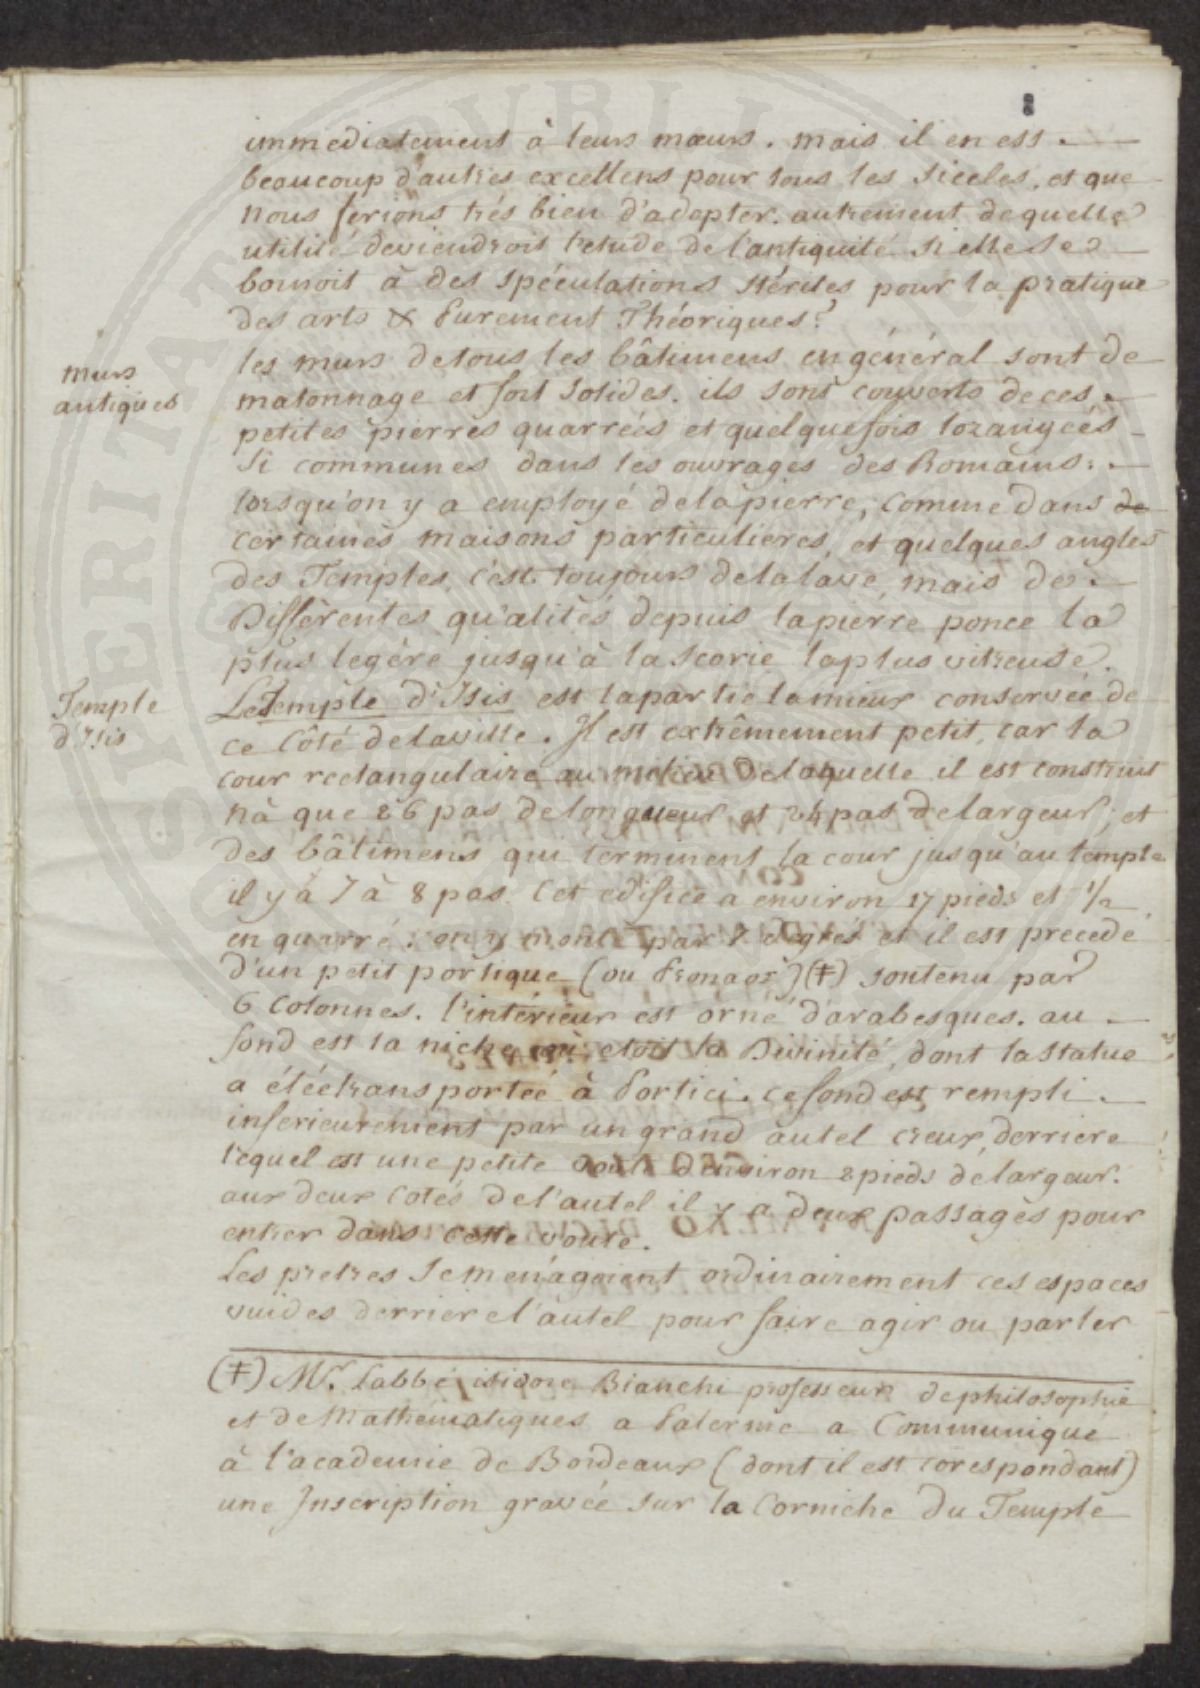 8
immediatement à leurs mœurs. mais il en est
beaucoup d'autres excellens pour tous les siecles, et que
nous ferions trés bien d'adopter. autrement de quelle
utilité deviendroit l'etude de l'antiquité si elle se
bornoit à des spéculations stériles pour la pratique
des arts & purement Théoriques?
murs
antiques
les murs de tous les bâtimens en général sont de
matonnage et fort solides. ils sont couverts de ces
petites pierres quarrées et quelquefois lozangées
si communes dans les ouvrages des Romains.
lorsqu'on y a employé de la pierre, comme dans de
certaines maisons particulieres, et quelques angles
des Temples, c'est toujours de la lave, mais de
Différentes qualités depuis la pierre ponce la
plus legère jusqu'à la scorie la plus vitreuse.
Temple
d'Isis
Le Temple d'Isis est la partie la mieux conservée de
ce Côté de la ville. Il est extrêmement petit, car la
cour rectangulaire au milieu de laquelle il est construit
n'a que 26 pas de longueur et 24 pas de largeur; et
des bâtimens qui terminent la cour jusqu'au temple
il y a 7 à 8 pas. Cet edifice a environ 17 pieds et 1/2
en quarré. on y monte par 7 degrés et il est precedé
d'un petit portique (ou Pronaos) (‡) soutenu par
6 Colonnes. l'intérieur est orné d'arabesques. au
fond est la niche où etoit la Divinité, dont la statue
a été transportée à Portici. ce fond est rempli
inferieurement par un grand autel creux, derriere
lequel est une petite voute d'environ 2 pieds de largeur.
aux deux cotés de l'autel il y a deux passages pour
entrer dans cette voute.
Les pretres se menageoient ordinairement ces espaces
vuides derriere l'autel pour faire agir ou parler
(‡) Mr. l'abbé isidore Bianchi professeur de philosophie
et de Mathématiques a Palerme a Communiqué
à l'academie de Bordeaux (dont il est corespondant)
une Inscription gravée sur la Corniche du Temple